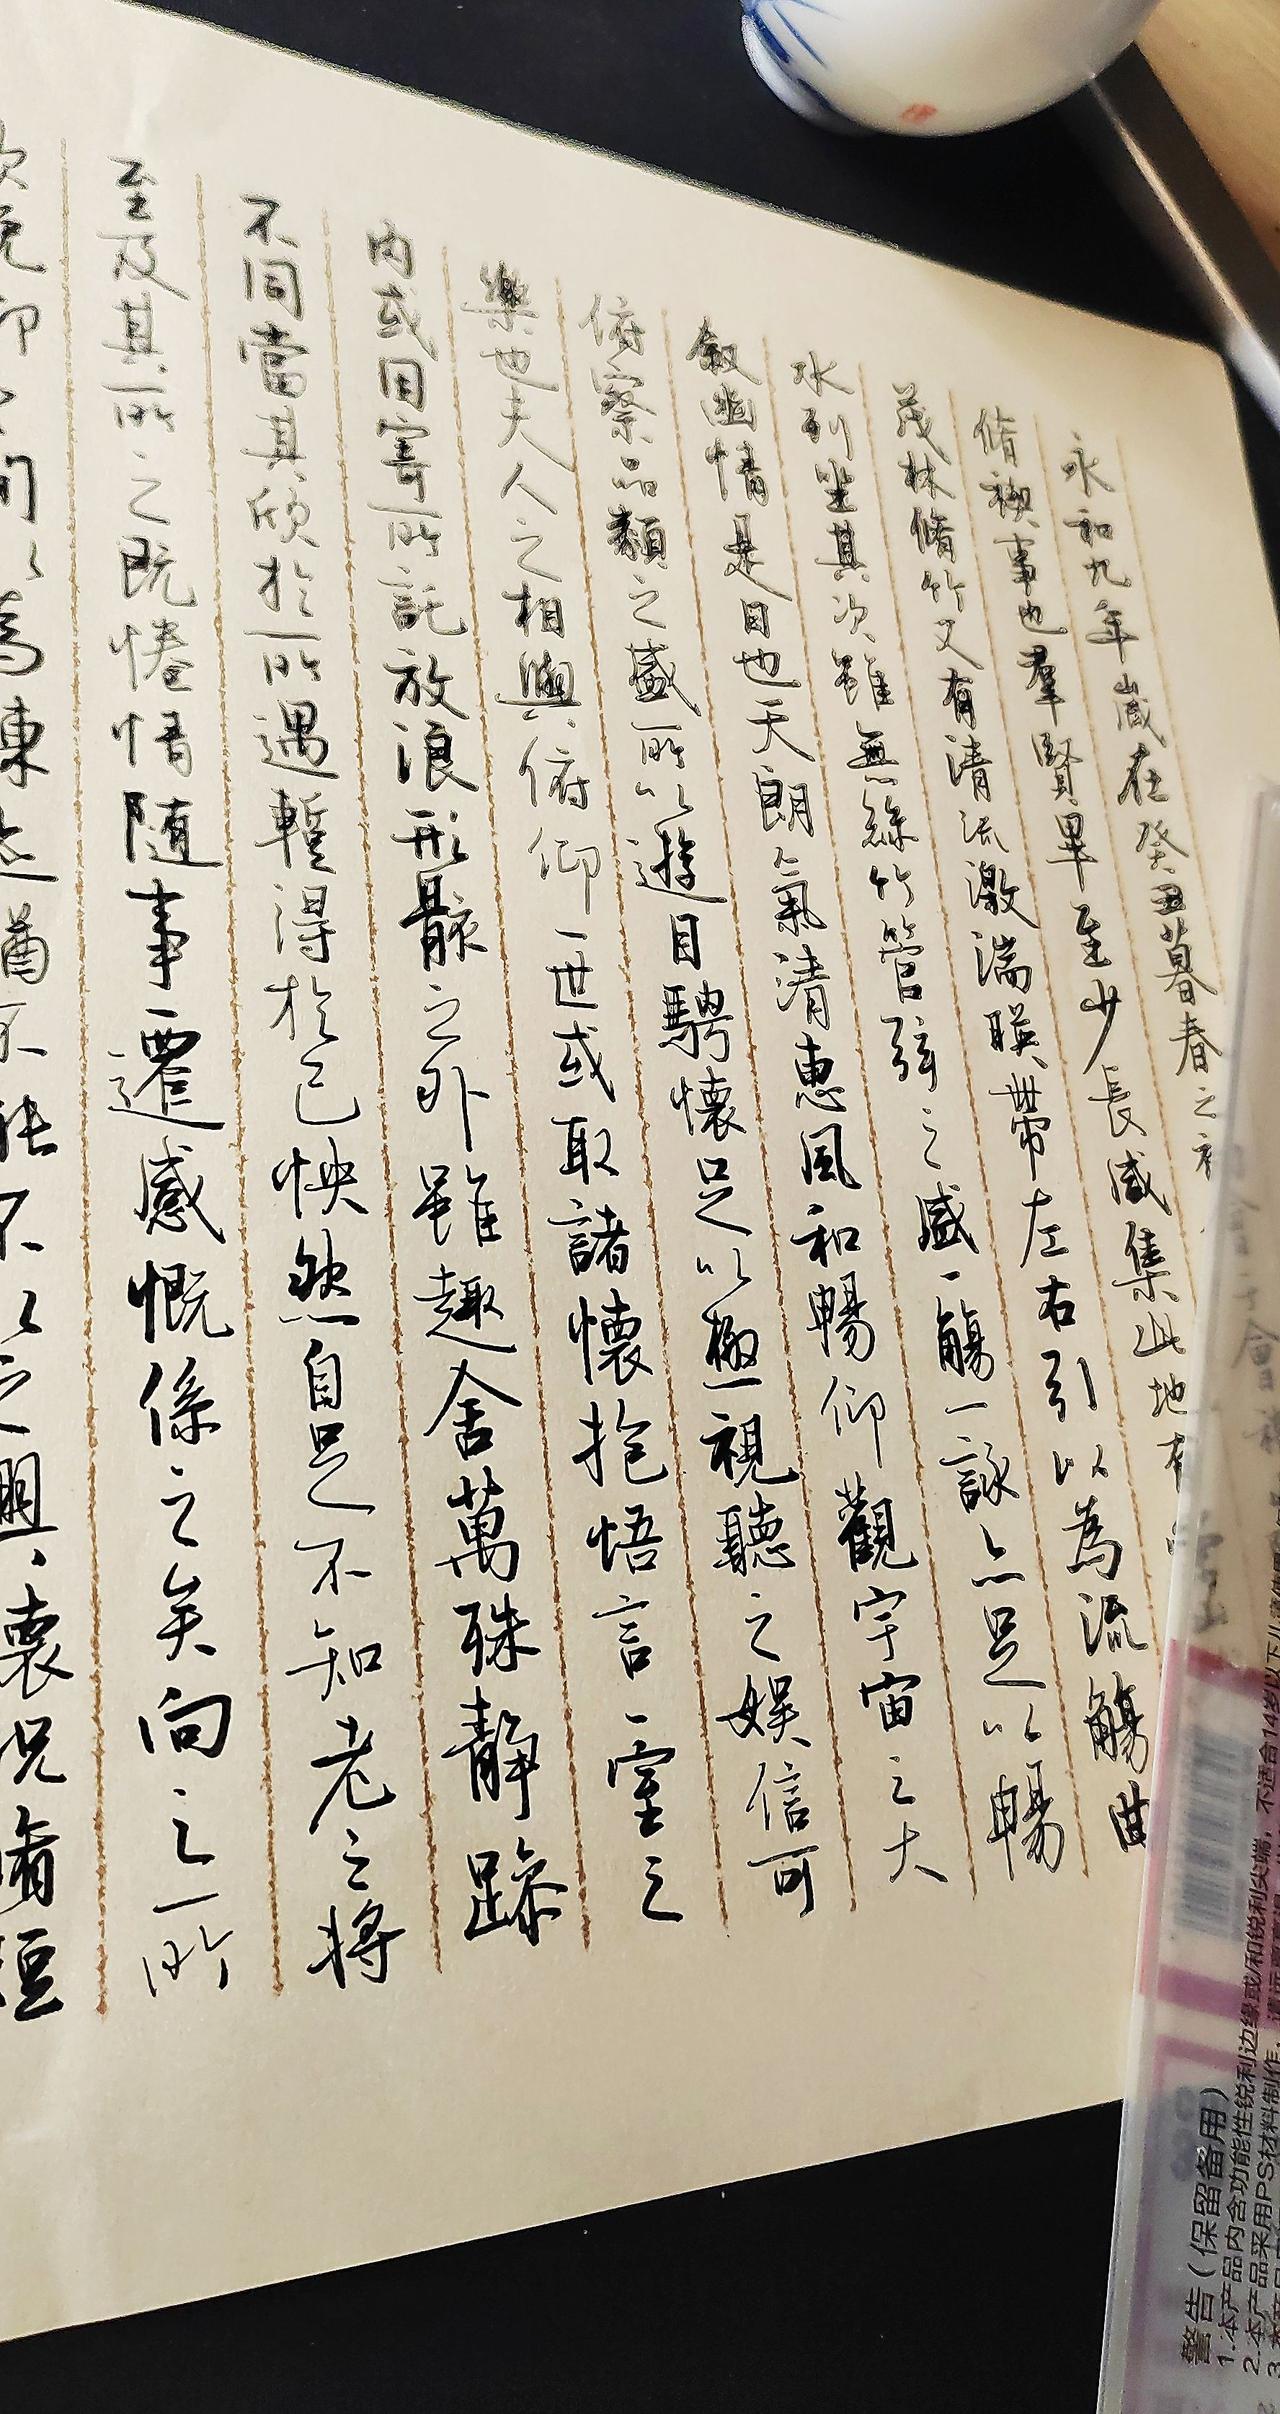 永和九年歲在癸丑暮春之初
脩禊事也羣賢畢至少長咸集此地有
茂林脩竹又有清流激湍暎帶左右引以為流觴曲
水列坐其次雖無絲竹管弦之盛一觴一詠亦足以暢
敘幽情是日也天朗氣清惠風和暢仰觀宇宙之大
俯察品類之盛所以遊目騁懷足以極視聽之娛信可
樂也夫人之相與俯仰一世或取諸懷抱悟言一室之
內或因寄所託放浪形骸之外雖趣舍萬殊靜躁
不同當其欣於所遇暫得於己怏然自足不知老之將
至及其所之既惓情隨事遷感慨係之矣向之所
欣俛仰之間以為陳迹猶不能不以之興懷況脩短
警告（保留备用）
1.本产品内含功能性锐利边缘或/和锐利尖端，不适合14岁以下儿童使用
2.本产品采用PS材料制作，请远离